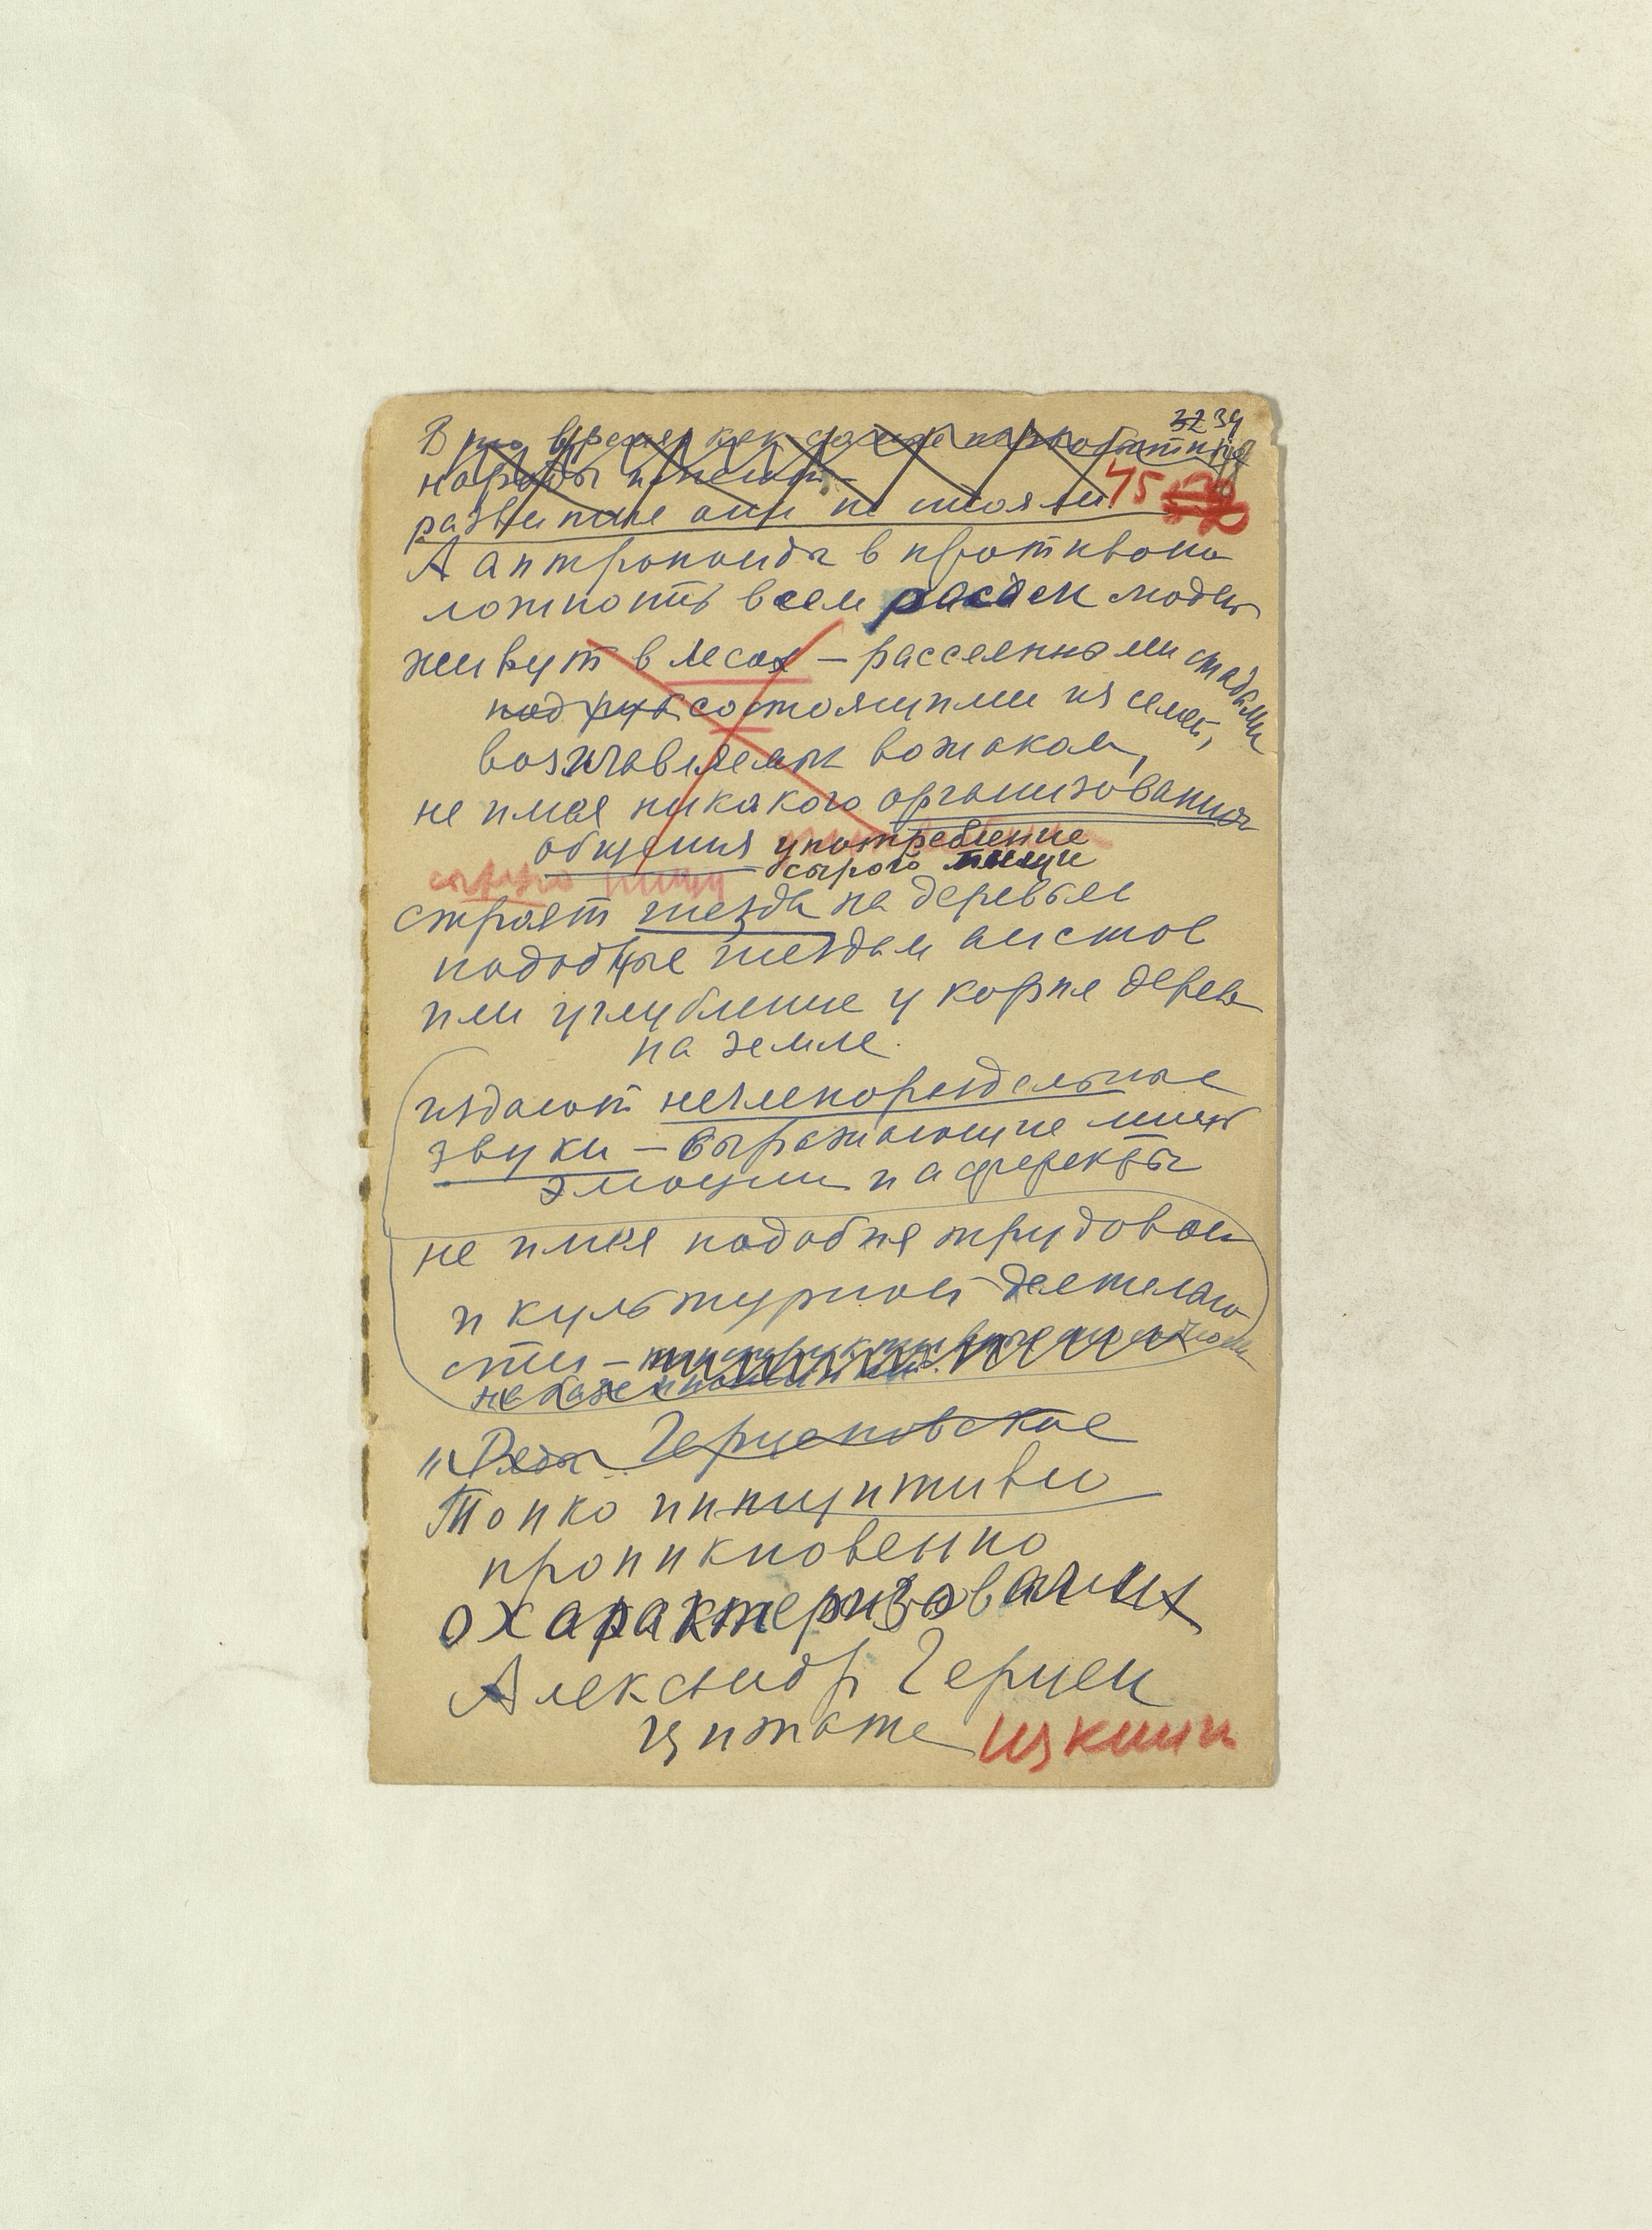 32 34
В то время как даже первобытные
народы
развитие они ни стояли 45
А антропоиды в противопо
ложность всем расам людей
живут в лесах – расселенными стадами
подруб состоящими из семей,
возглавляемых вожаком,
не имея никакого организованного
общения употребление
сырого пищи
сырую пищу
строят гнезда на деревьях
подобные гнездам аистов
или углубление у корня дерева
на земле.
издают нечленораздельные
звуки – выражающие лишь
эмоции и аффекты
не имея подобия трудовой
и культурной деятельно
сти –
"Герценовское
Тонко интуитивно
проникновенно
охарактеризованных
Александр Герцен
цитате Цукшин